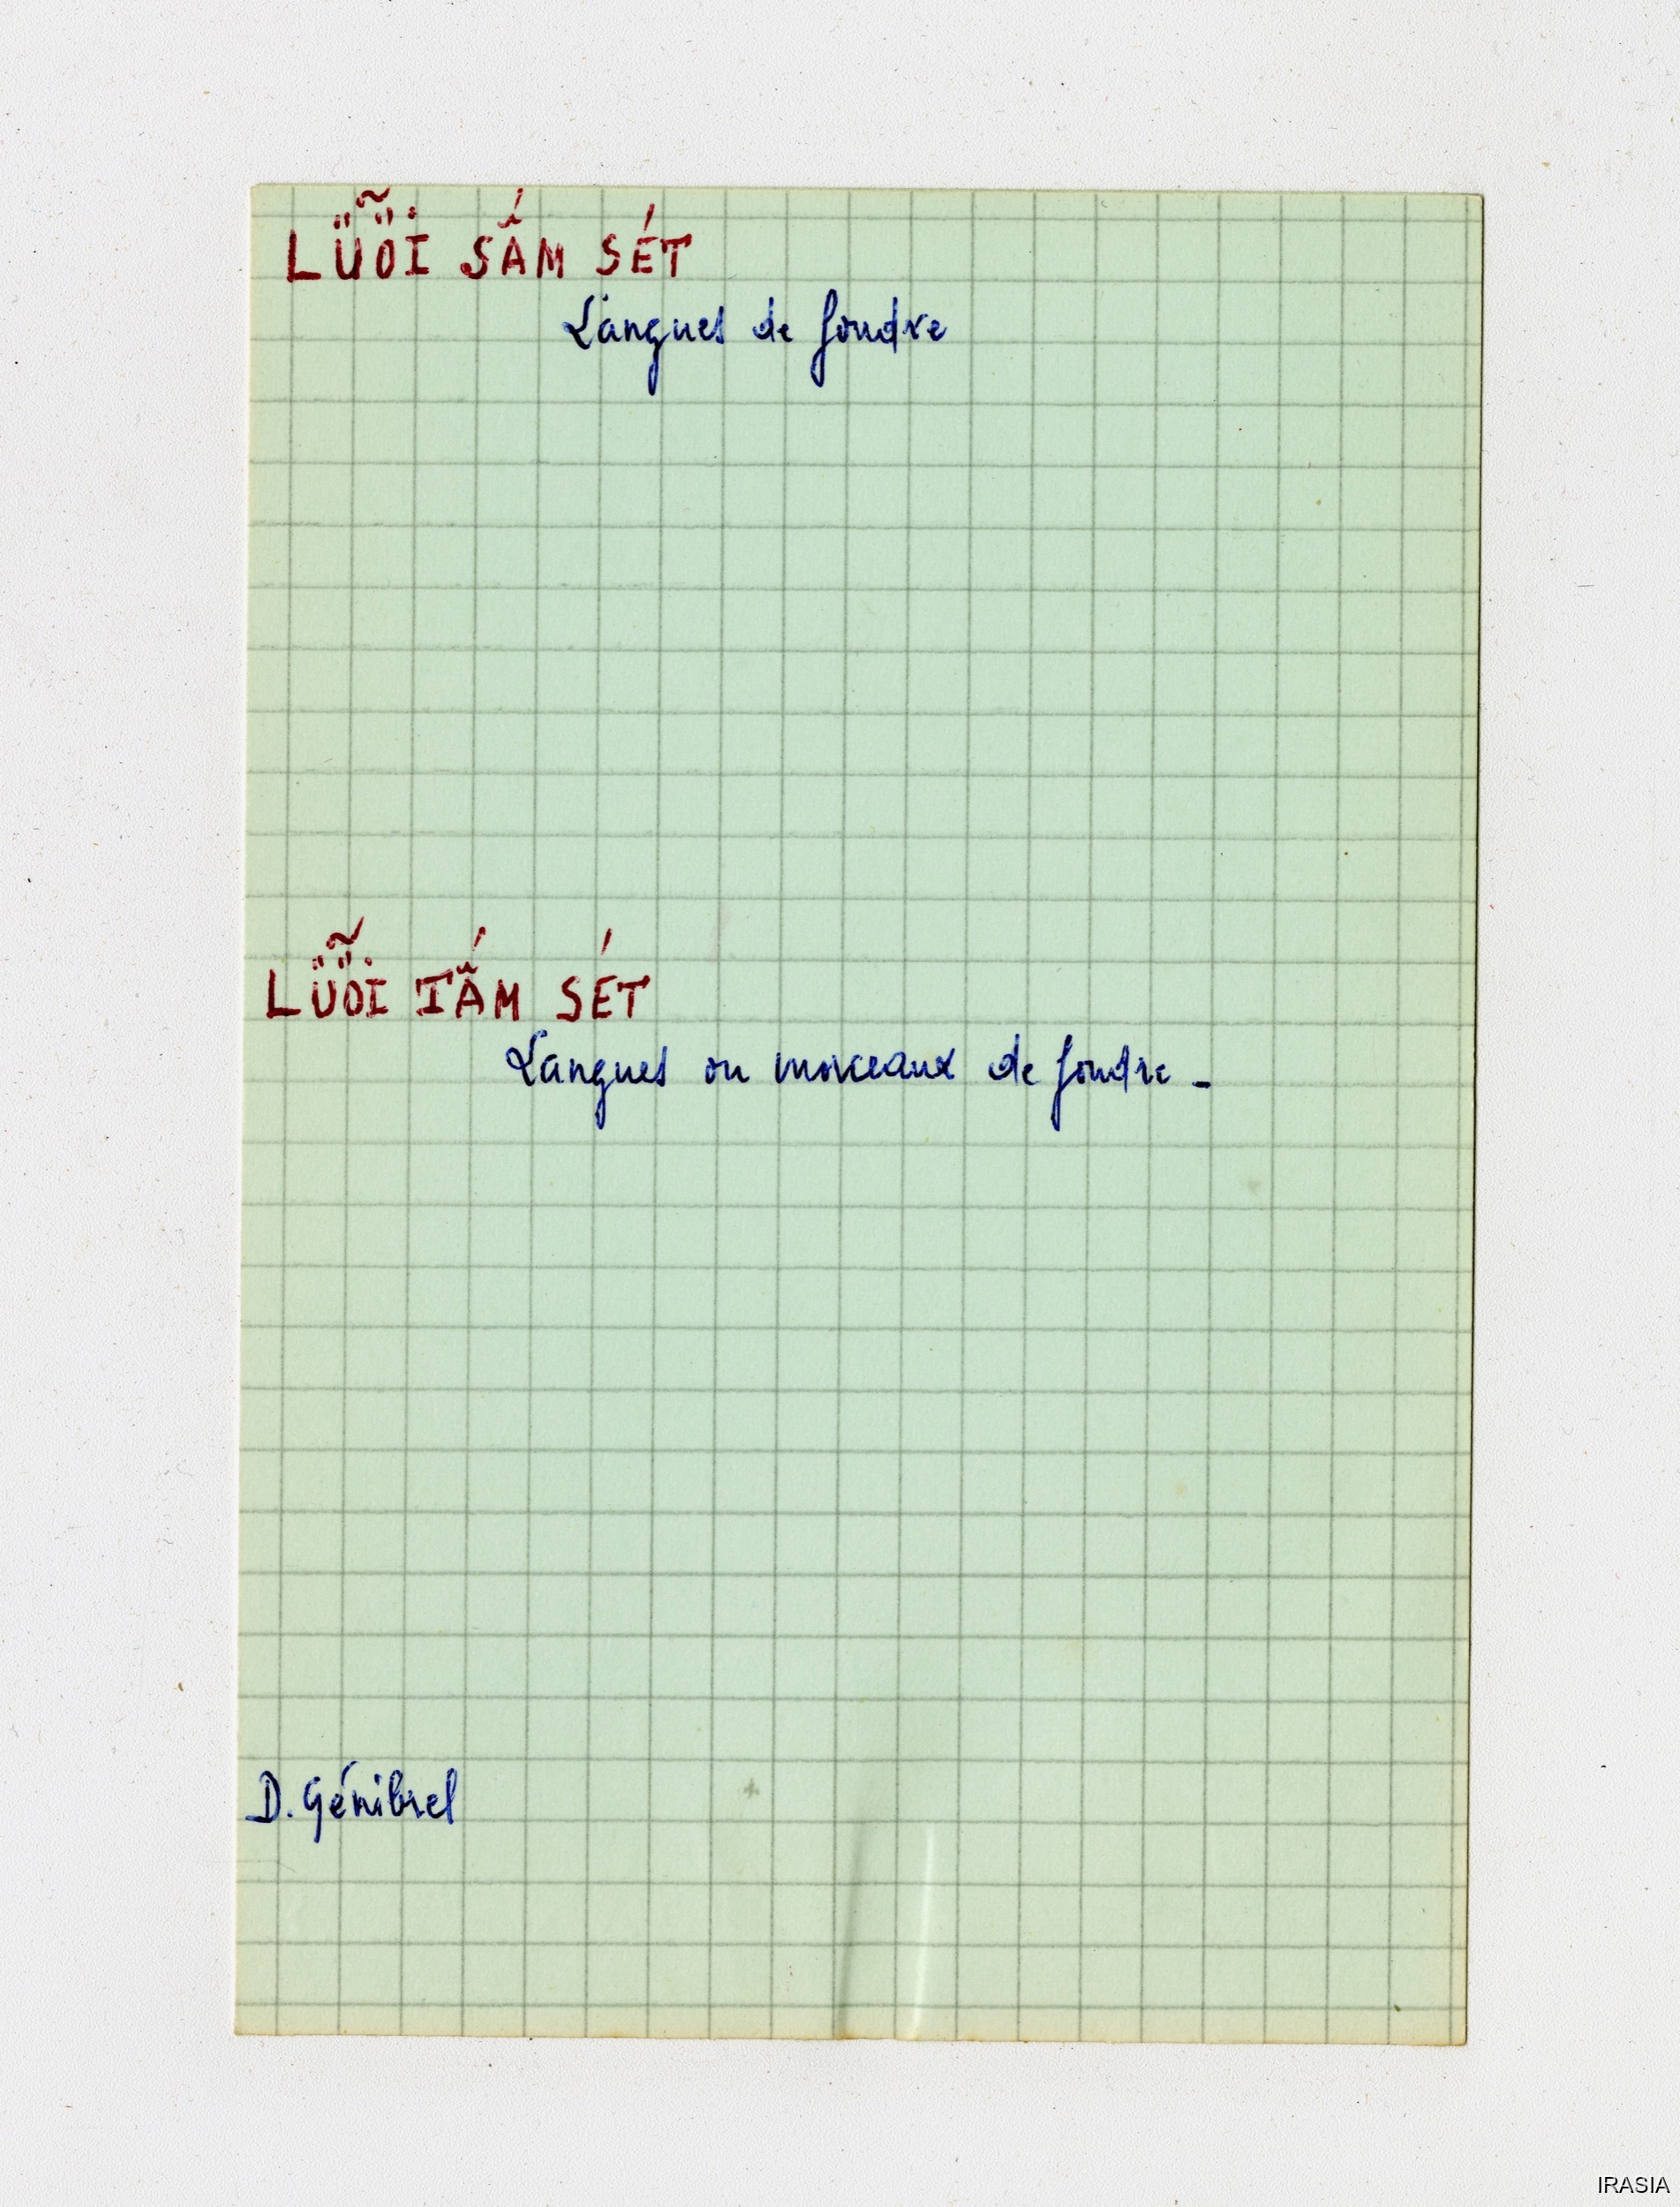 LƯỠI SẤM SÉT
Langues de foudre
LƯỠI TẤM SÉT
Langues ou morceaux de foudre -
D. Génibrel
IRASIA